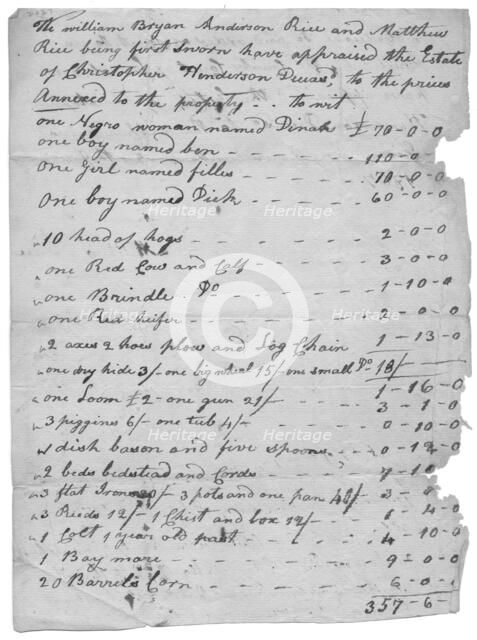 We william Bryan Anderson Rice and Matthew
Rice being first sworn have appraised the Estate
of Christopher Henderson Deceasd, to the prices
Annexed to the property .. to wit
one Negro woman named Dinah £ 70-0-0
one boy named ben - 110-0-0
one Girl named filles - 70-0-0
one boy named Dick - 60-0-0
" 10 head of hogs - 2-0-0
" one Red Cow and Calf - 3-0-0
" one Brindle Do 1-10-0
" one Red heifer - -0-0
" 2 axes 2 hoes plow and Log Chain 1-13-0
" one dry hide 3/- one big wheel 15/- one small Do 18/-
1-16-0
" one Loom £2- one gun 21/- 3-1-0
" 3 piggins 6/- one tub 4/- 0-10-0
" dish bason and five spoons .. 0-12-0
" 2 beds bedstead and Cords - 7-10
" 3 flat Irons 20/- 3 pots and one pan 40/- 3-0
" 3 Reeds 12/- 1 Chist and box 12/- 1-4-0
" 1 Colt 1 year old past - 4-10-0
1 Bay mare - 9-0-0
20 Barrels Corn 6-0-
357-6-
Heritage
Heritage
Heritage
Heritage
Heritage
Heritage